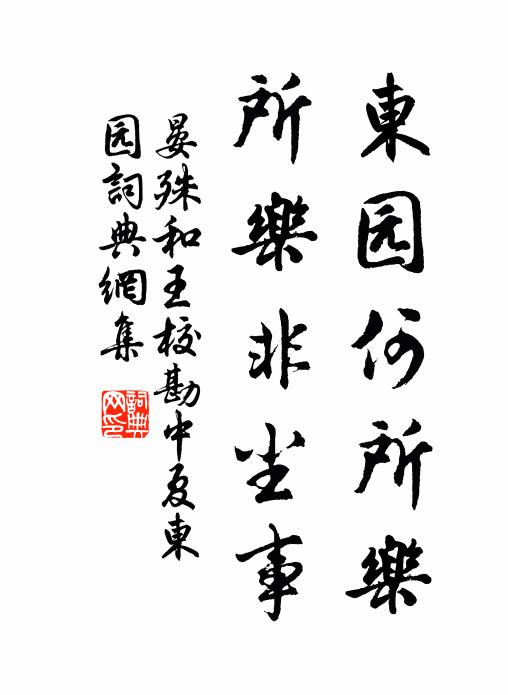 東园何所樂
所樂非尘事
晏殊和王校勘中夏東
园詞典網集
詞典网印